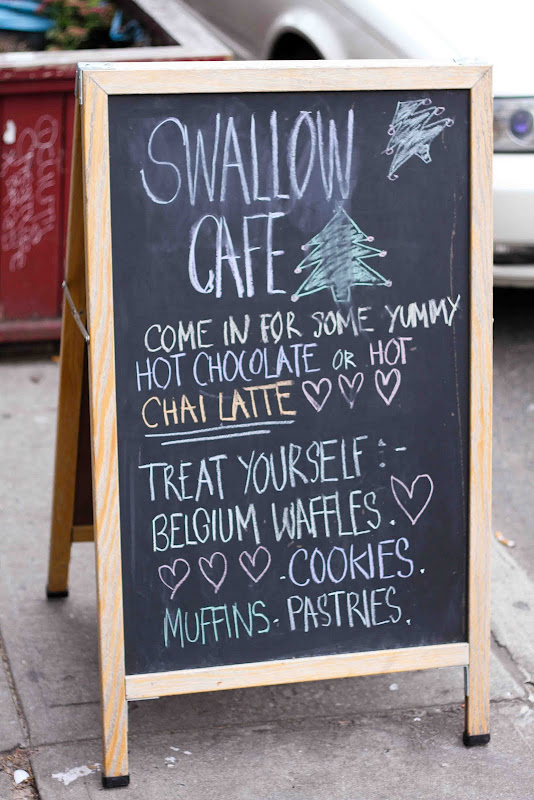 SWALLOW
CAFE
COME IN FOR SOME YUMMY
HOT CHOCOLATE OR HOT
CHAI LATTE
TREAT YOURSELF :-
BELGIUM WAFFLES.
.COOKIES.
MUFFINS. PASTRIES.